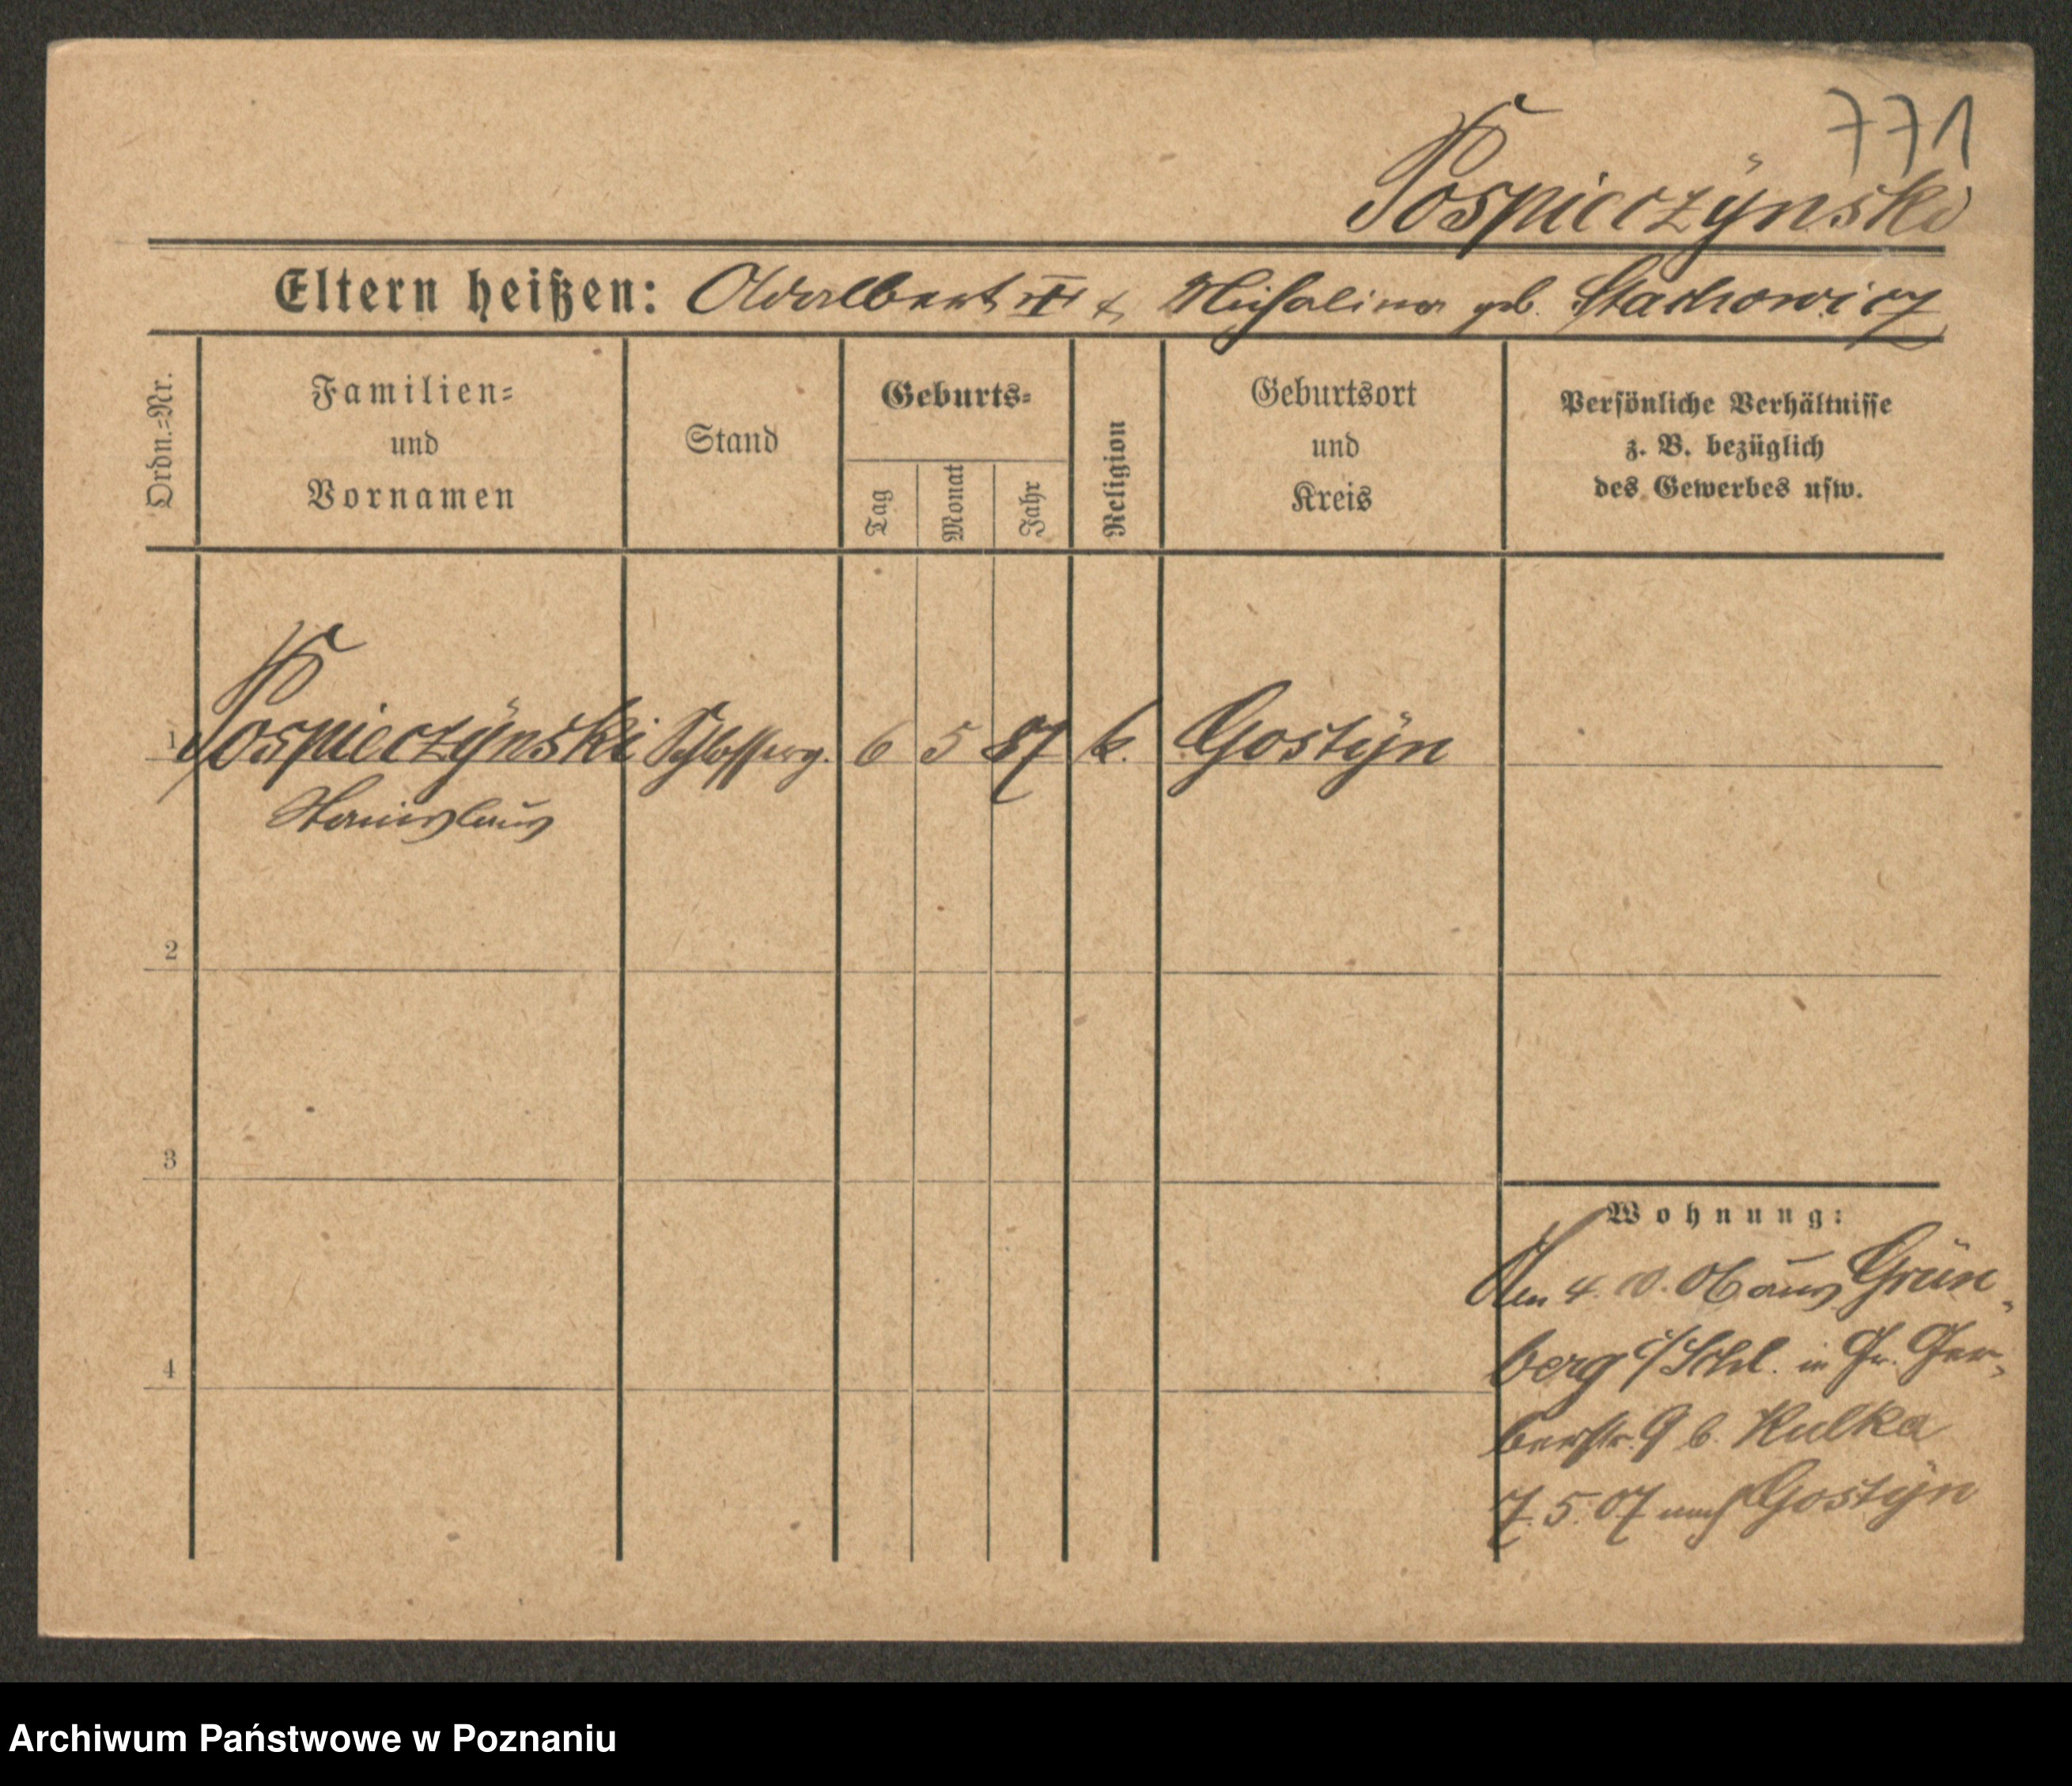 771
Pospieczÿnski
Eltern heißen: Adalbert & Michalina geb. Stachowicz
Ordn.-Nr.
Familien-
und
Vornamen
Stand
Geburts-
Tag
Monat
Jahr
Religion
Geburtsort
und
Kreis
Persönliche Verhältnisse
z. B. bezüglich
des Gewerbes usw.
1 Pospieczÿnski Schlosserg. 6 5 87 k. Gostÿn
Stanislaus
2
3
4
Wohnung:
Den 4. 10. 06 aus Grün-
berg i/Schl. in Gr. Ger-
berstr. 9 b. Kulka
7. 5. 07 nach Gostÿn
Archiwum Państwowe w Poznaniu